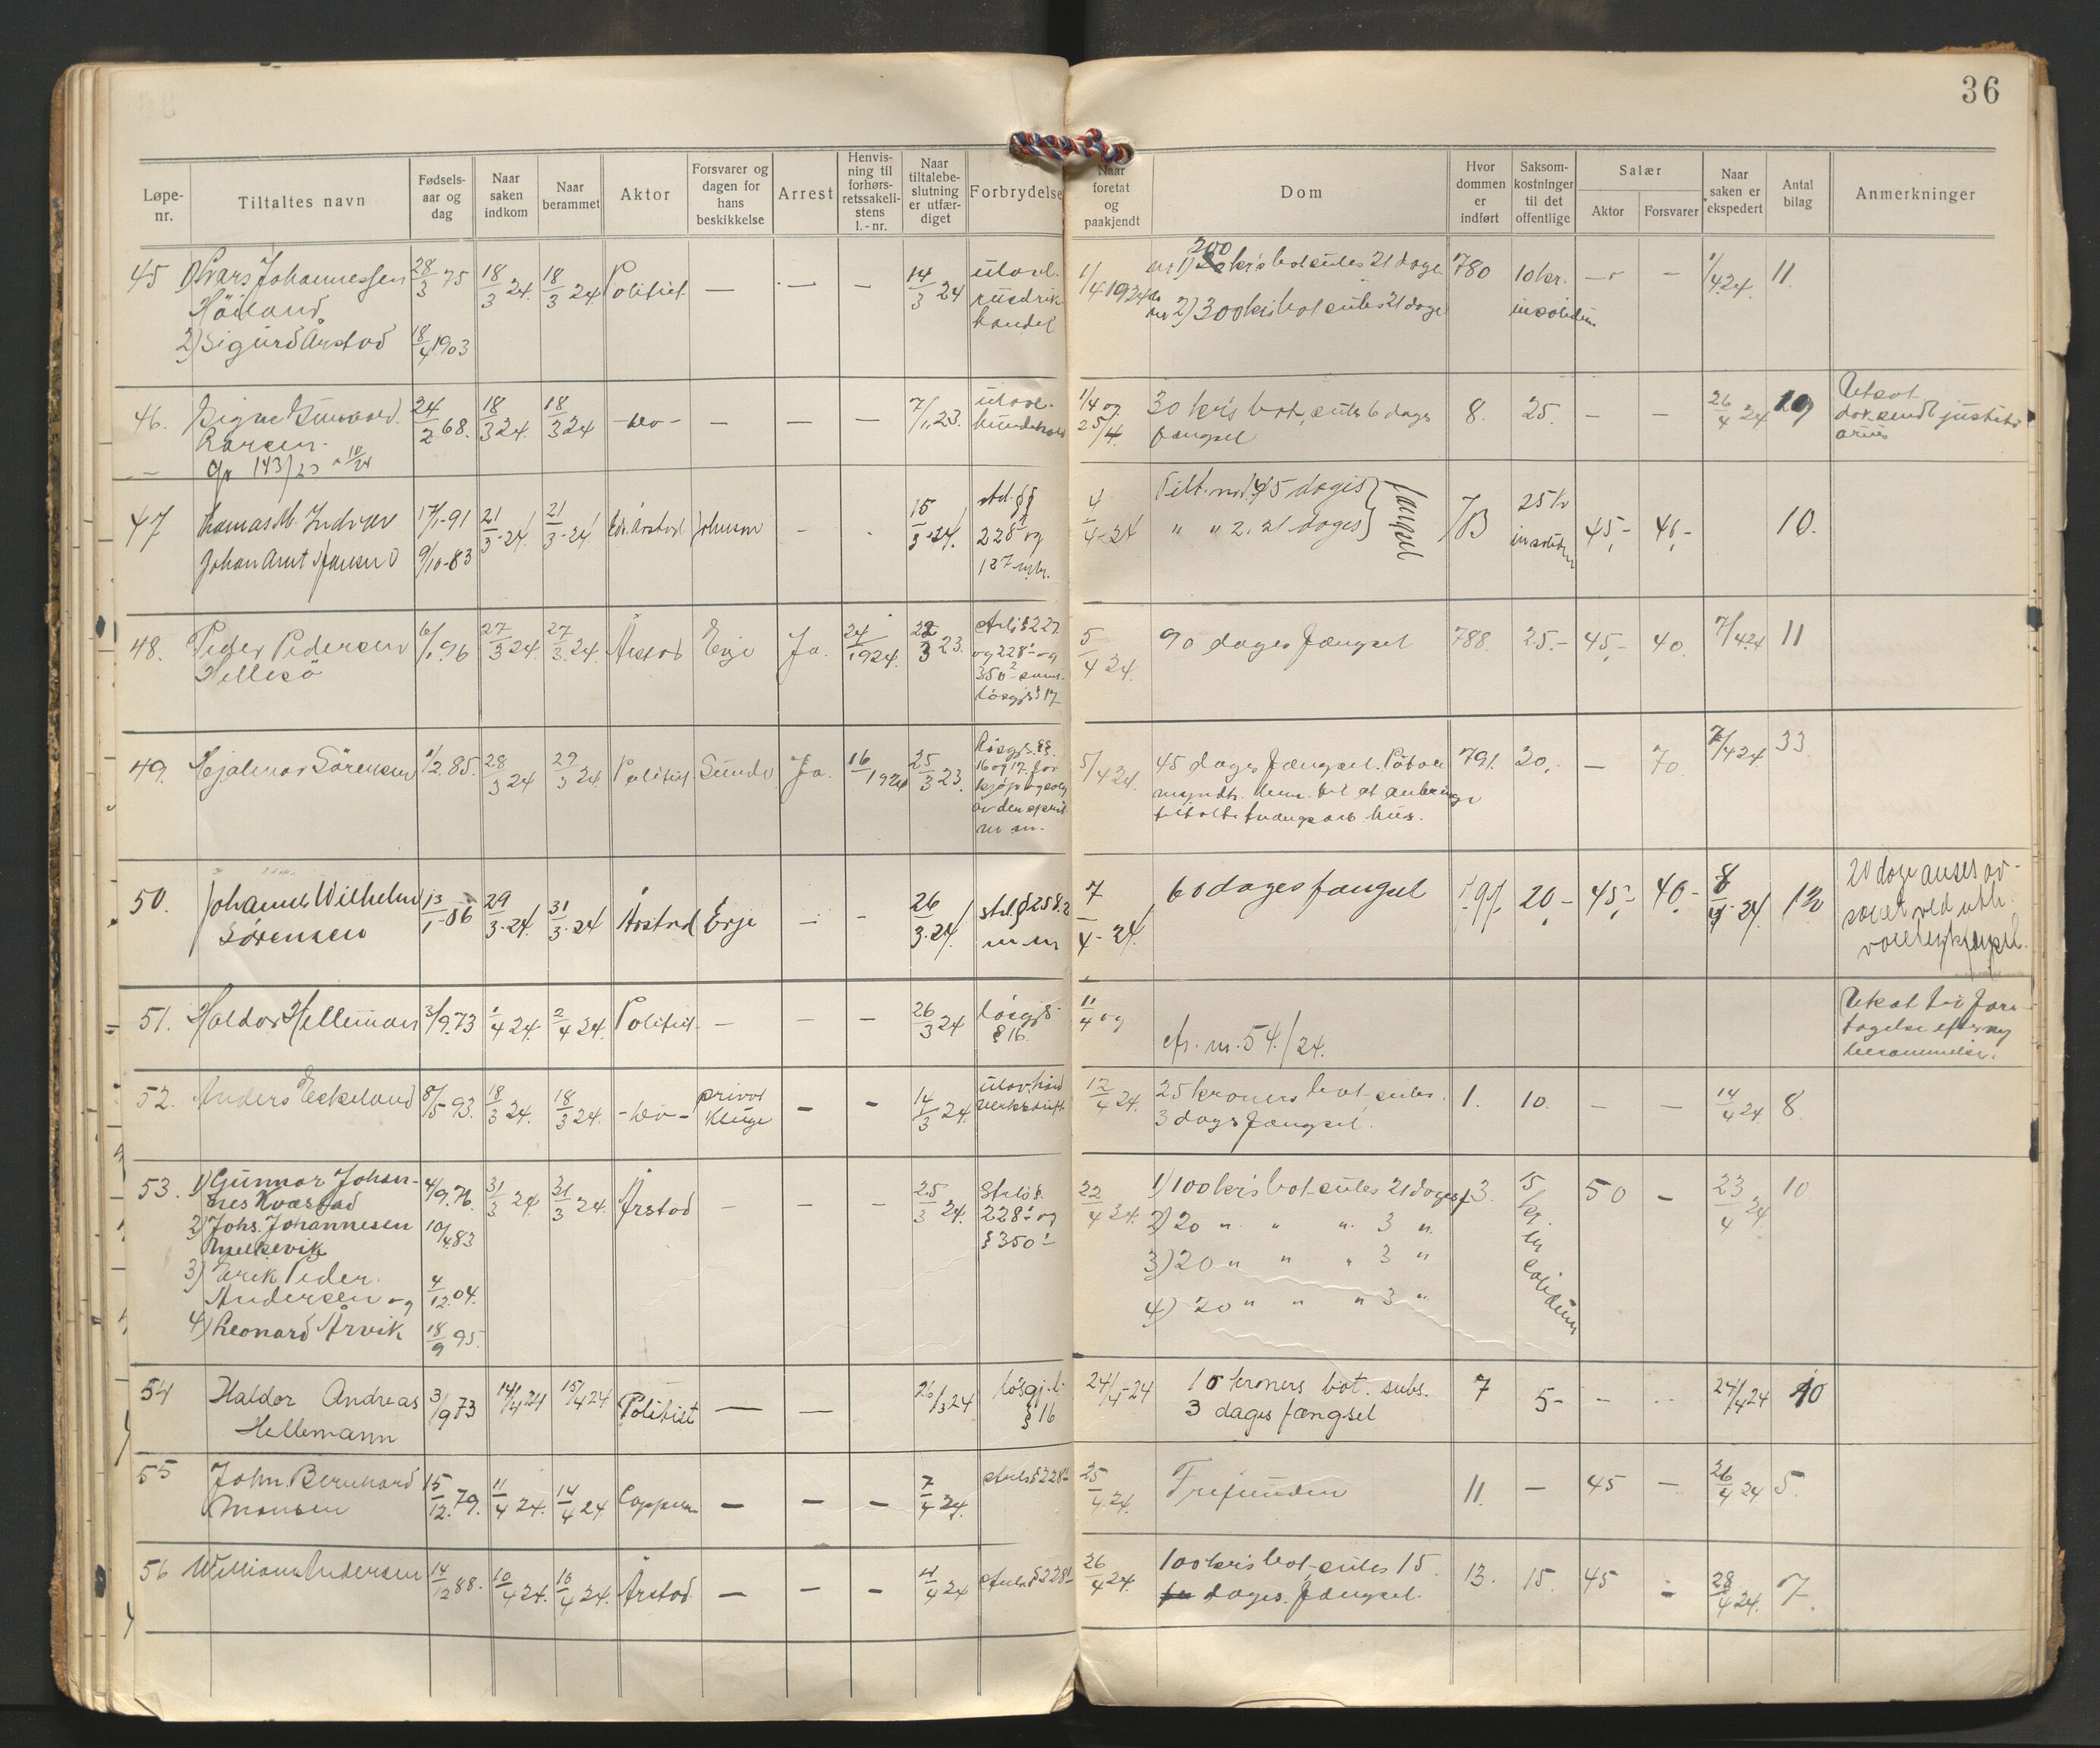 36
Løpe-nr. Tiltaltes navn Fødsels-aar og dag Naar saken indkom Naar berammet Aktor Forsvarer og dagen for hans beskikkelse Arrest Henvis-ning til forhørs-retssakeli-stens l.-nr. Naar tiltalebe-slutning er utfær-diget Forbrydelse Naar foretat og paakjendt Dom Hvor dommen er indført Saksom-kostninger til det offentlige Salær Aktor Forsvarer Naar saken er ekspedert Antal bilag Anmerkninger
45 1) Lars Johannessen 28/3 75 18/3 24. 18/3 24 Politiet — — — 14/3 24 ulovl. 1/4 1924 nr 1) 200 kr's bot subs 21 dage 780 10 kr. — — 1/4 24. 11.
Höiland rusdrik nr 2) 300 kr's bot subs 21 dage in solidum
2) Sigurd Årstad 18/4 1903 handel
46. Signe Gunvald. 24/2 68. 18/3 24. 18/3 24 -do- — — — 7/1 23. ulovl. 1/4 og 25/4. 30 kr's bot, subs 6 dages 8. 25. — — 26/4 24 Utsat
Larsen hundehold fængsel dok. sendt justits
— Gp 143/23
47 17/1-91 21/3-24 21/3-24 Årstad Johnsen - 15/3-24. stl. §§ 4/4-24 Tilt. nr 1. 45 dages } fængsel 25 kr 45,- 40,- 10.
Johan Arnt Hansen 9/10-83 228 og " " 2. 21 dages in solidum
127
48. Peder Pedersen 6/1 96 27/3 24. 27/3 24. Årstad Erje Ja. 24/1924. 22/3 23. Strls § 227 5/4 24. 90 dages fængsel 788. 25.- 45,- 40. 7/4 24 11
Hellesö og 228 og
350 sam.
lösgjs § 17
49. Hjalmar Sörensen 1/2. 85. 28/3 24 29/3 24 Politiet Sunde Ja. 16/1924 25/3 23. Lösgjs. §§ 5/4 24. 45 dages fængsel. Påtale 791. 20,- — 70. 7/4 24 33
16 og 17 for myndh. bem. til at anbringe
kjøp og salg tiltalte tvangsarb. hus.
av den sprit
m. m.
50. Johannes Wilhelm 13/1-86 29/3-24 31/3-24 Årstad Erje — - 26/3-24 strl. § 258. 2 7/4-24. 60 dages fængsel 20- 45,- 40,- 8/4-24 20 dage anses av-
Sörensen m m sonet ved utholdt
varetektsfængsel.
51. Haldor Helleman 3/9 73 1/4 24 2/4 24. Politiet — — — 26/3 24 lösgjs 11/4 og Utsat til fore-
§ 16. cfr. nr. 54/24. tagelse efter ny
berammelse.
52. Anders Eckeland 8/5 93. 18/3 24. 18/3 24. -do- privat — — 14/3 24. ulov. hånd 12/4 24. 25 kroners bot subs. 1. 10. — — 14/4 24 8.
Kluge verksdrift 3 dages fængsel.
53. 1) Gunnar Johan- 4/9 76. 31/3 24. 31/3 24. Årstad — — — 25/3 24. Strls § 22/4 24. 1) 100 kr's bot subs 21 dages f 3. 15 kr. in solidum 50 — 23/4 24 10
nes Kvastad 228 og 2) 20 " " " 3 "
2) Johs. Johannesen 10/4 83 § 350 3) 20 " " " 3 "
Melkevik 4) 20 " " " 3 "
3) Erik Peder.
Andersen og 4/12. 04.
4) Leonard Årvik 18/9 95.
54 Haldor Andreas 3/9 73 14/4 24 15/4 24 Politiet — — 26/3 24 lösgj. l. 24/4-24 10 kroners bot. subs. 7 5- - - 24/4 24 10
Hellemann § 16 3 dages fængsel
55 John Bernhard 15/12. 79. 11/4 24. 14/4 24 Cappelen — — — 7/4 24. Strls § 228 25/4 24. Frifunden 11. — 45 — 26/4 24 5.
Monsen
56 William Andersen 14/12 88. 10/4 24. 10/4 24. Årstad — — — 4/4 24 Strls § 228 26/4 24. 100 kr's bot, subs 15. 13. 15. 45 — 28/4 24. 7.
dages fængsel.